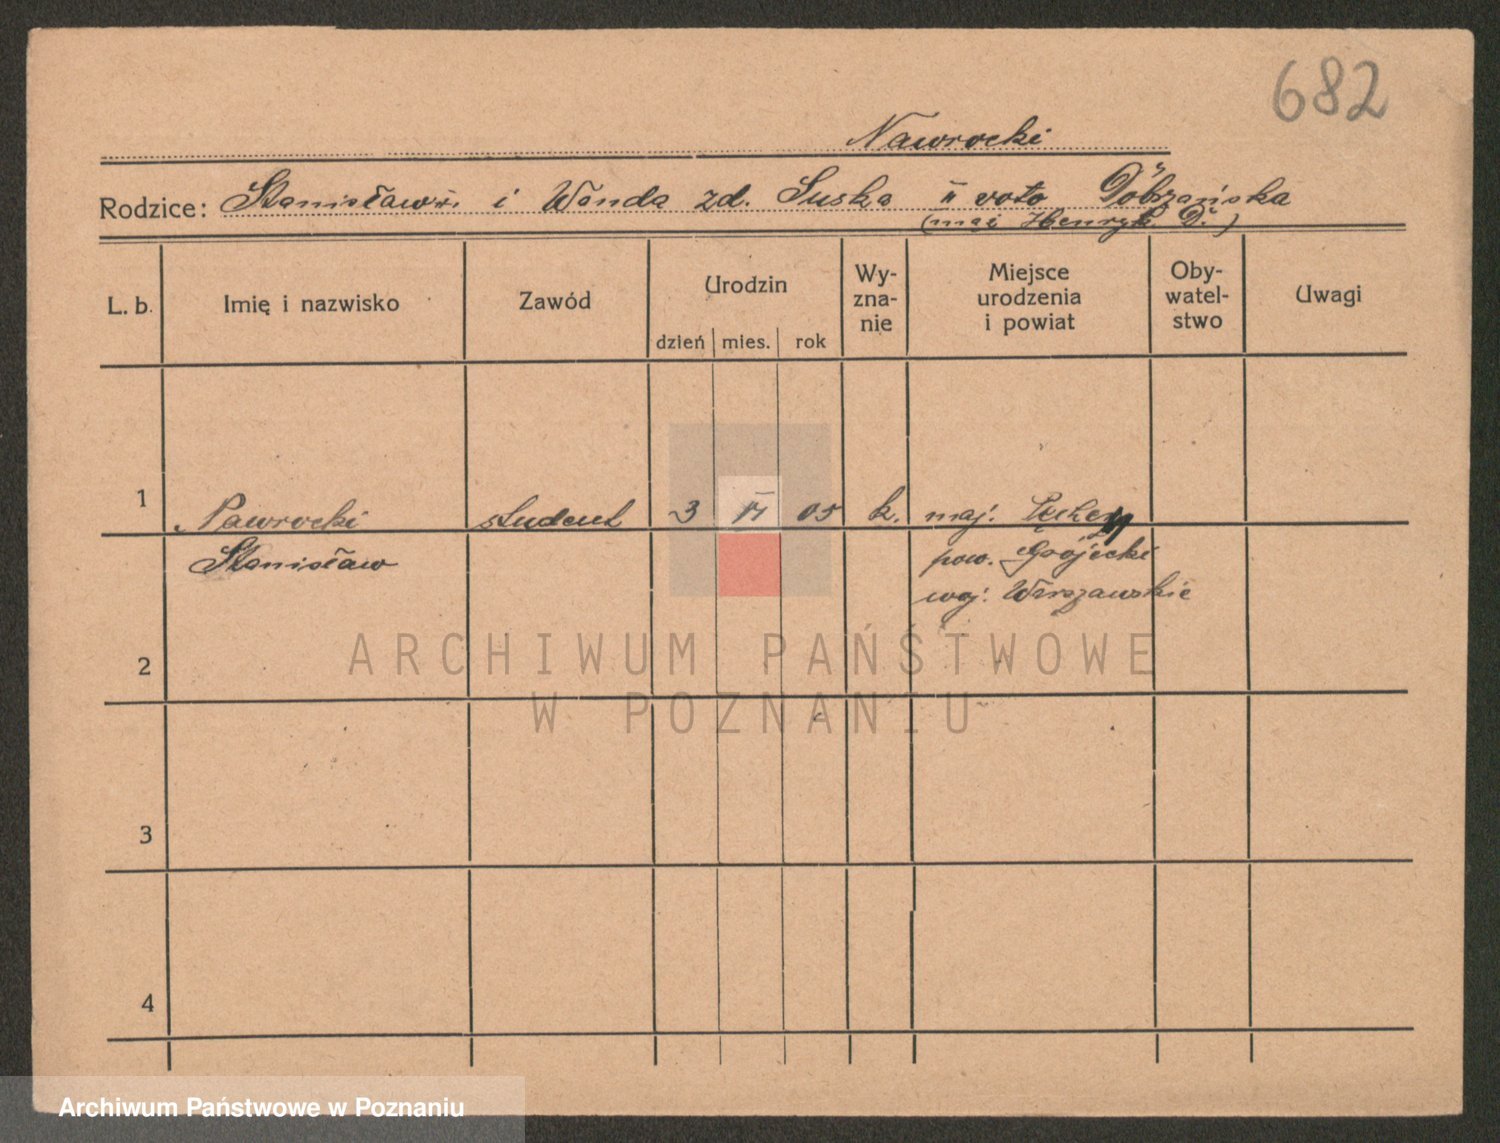 682
Nawrocki
Rodzice: Stanisław i Wanda zd. Suska II voto Dobrzańska
(mąż Henryk D.)
L. b. Imię i nazwisko Zawód Urodzin Wy-zna-nie Miejsce urodzenia i powiat Oby-watel-stwo Uwagi
dzień mies. rok
1 Nawrocki student 3 VI 05 k. maj.
Stanisław pow. Grójecki
woj. Warszawskie
2
ARCHIWUM PAŃSTWOWE
W POZNANIU
3
4
Archiwum Państwowe w Poznaniu